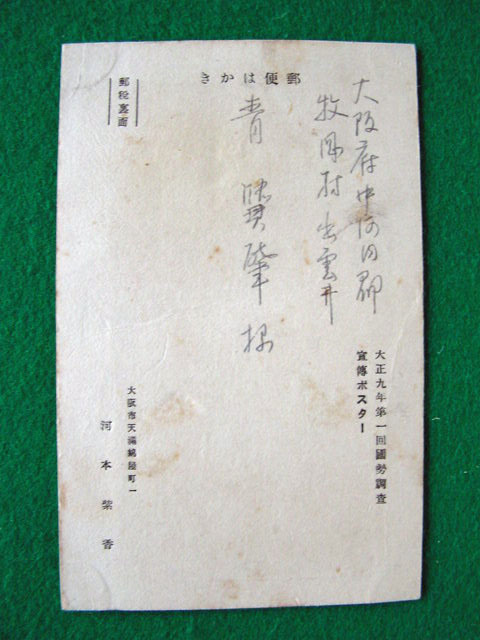 郵便はかき
大阪府中河内郡
牧岡村出雲井
青賢肇様
大正九年第一回國勢調査
宣傳ポスター
郵税裏面
大阪市天満錦屋町一
河本紫香